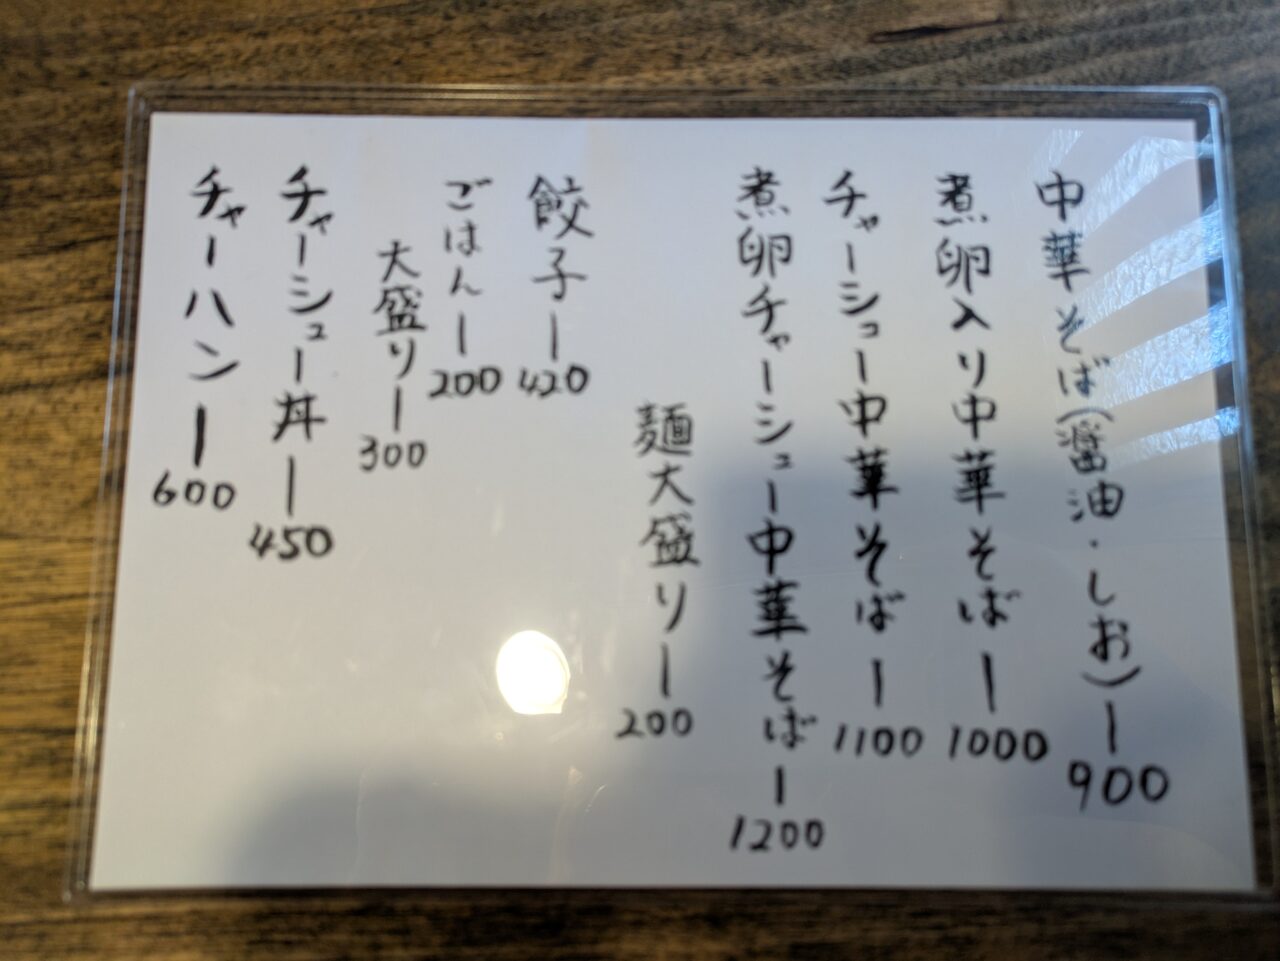 中華そば(醤油・しお)ー900
煮卵入り中華そばー1000
チャーシュー中華そばー1100
煮卵チャーシュー中華そばー1200
麺大盛りー200
餃子ー420
ごはんー200
大盛りー300
チャーシュー丼ー450
チャーハンー600